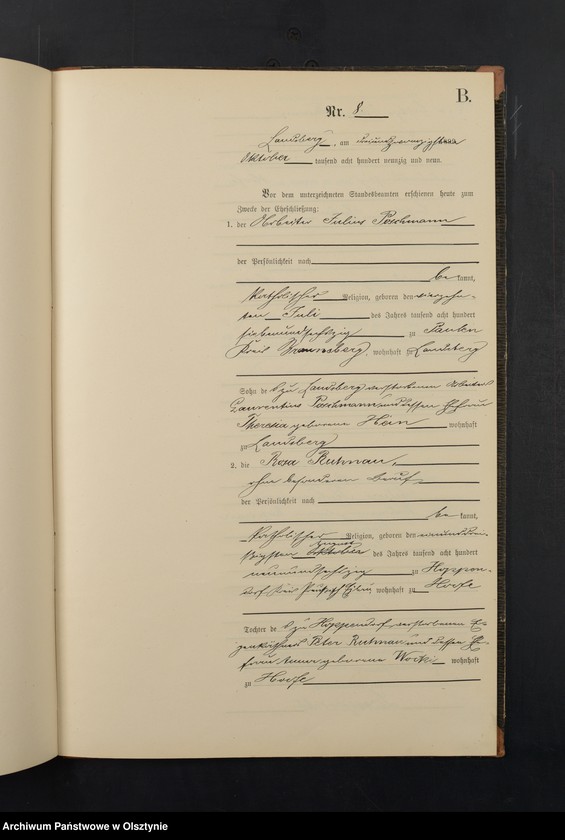 B.
Nr. 8
Landsberg, am
Oktober tausend acht hundert neunzig und neun.
Vor dem unterzeichneten Standesbeamten erschienen heute zum
Zwecke der Eheschließung:
1. der Arbeiter Julius Poschmann
der Persönlichkeit nach
be kannt,
katholischer Religion, geboren den vierzehn-
ten Juli des Jahres tausend acht hundert
siebenundsechszig zu
Kreis Braunsberg, wohnhaft zu Landsberg
Sohn des zu Landsberg verstorbenen Arbeiters
Laurentius Poschmann und dessen Ehefrau
Theresia geborene Hein wohnhaft
zu Landsberg
2. die Rosa Ruhnau,
ohne besonderen Beruf
der Persönlichkeit nach
be kannt,
katholischer Religion, geboren den einunddrei-
ßigsten August Oktober des Jahres tausend acht hundert
neunundsechszig zu Hoppen-
dorf Kreis Preußisch Eylau wohnhaft zu Hoofe
Tochter des zu Hoppendorf verstorbenen Ei-
genkäthners Peter Ruhnau und dessen Ehe-
frau Anna geborene wohnhaft
zu Hoofe
Archiwum Państwowe w Olsztynie